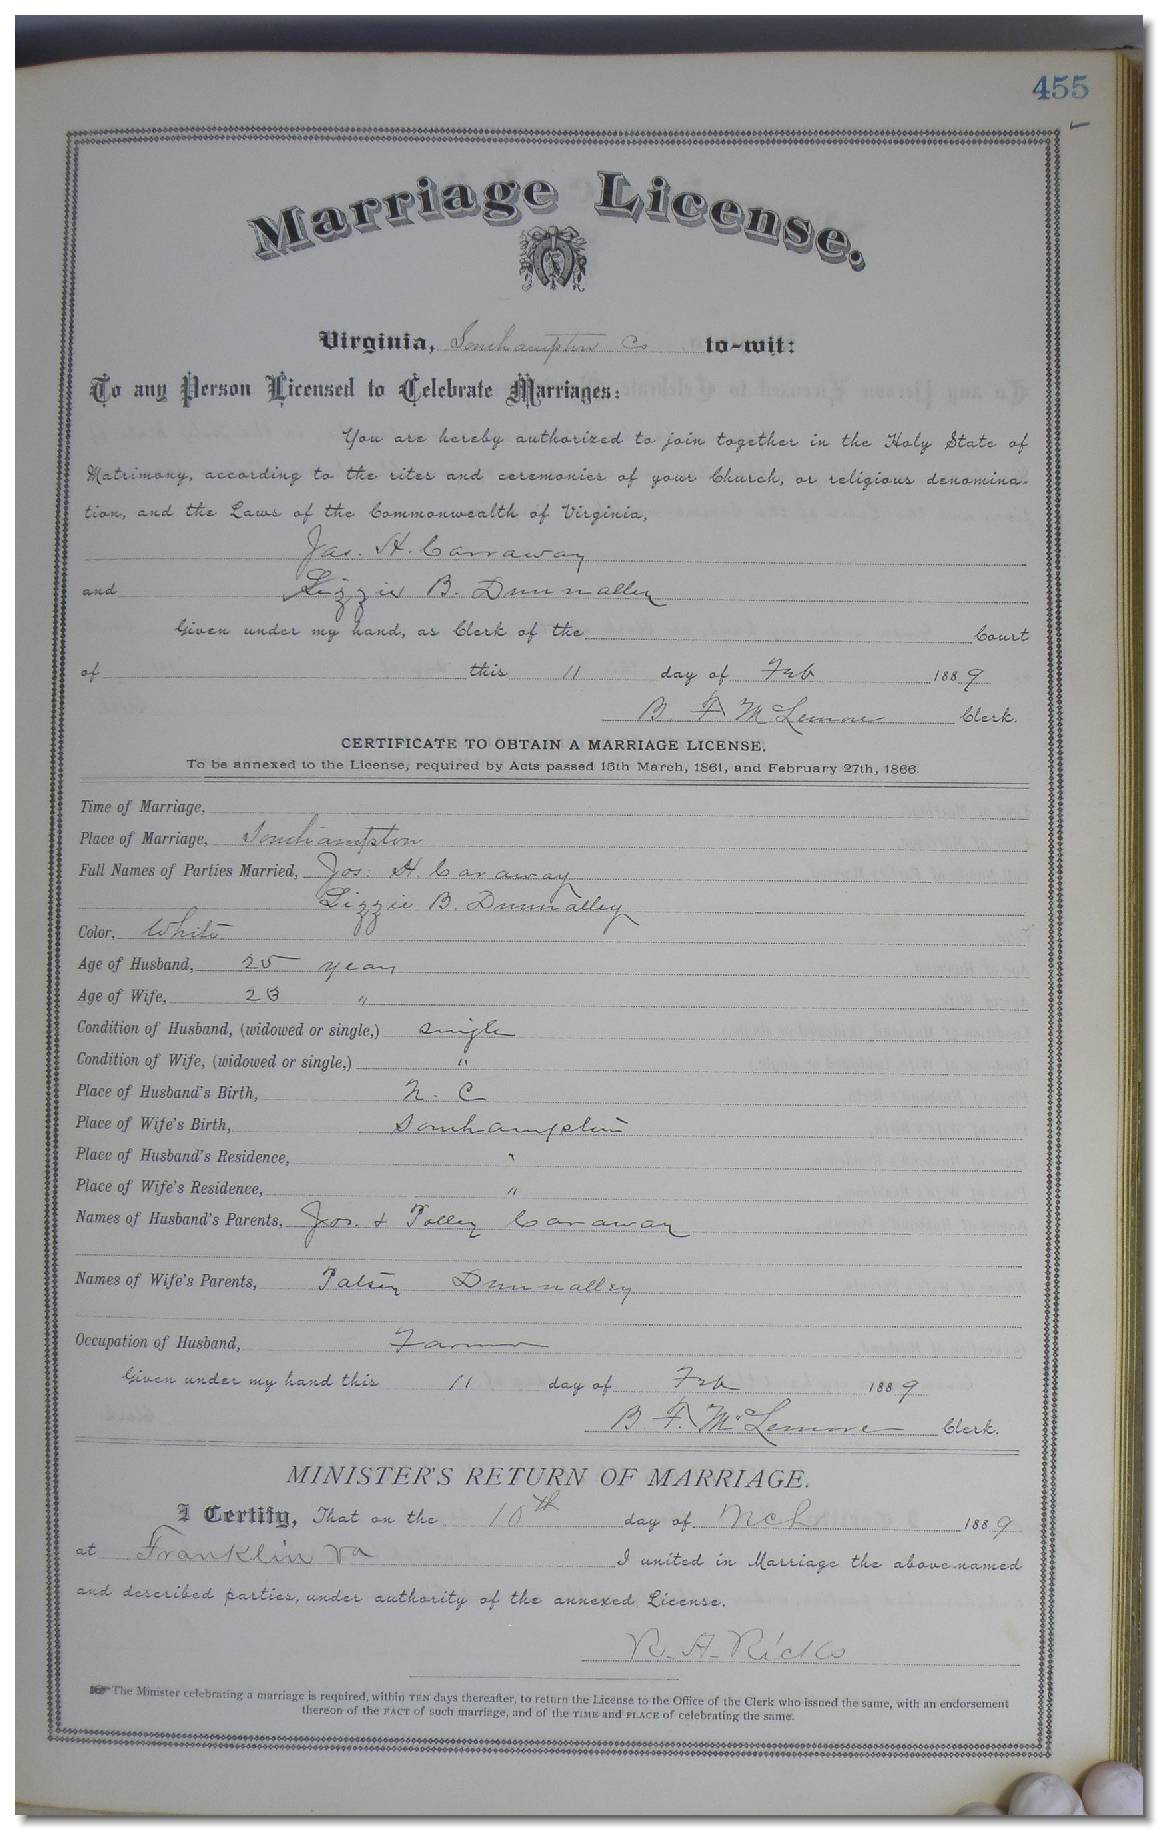 455
Marriage License.
Virginia, Southampton Co to-wit:
To any Person Licensed to Celebrate Marriages:
You are hereby authorized to join together in the Holy State of
Matrimony, according to the rites and ceremonies of your Church, or religious denomina-
tion, and the Laws of the Commonwealth of Virginia,
Jas. H. Carraway
and Lizzie B. Dunnalley
Given under my hand, as Clerk of the Court
of this 11 day of Feb 1889
B. F. McLemore Clerk.
CERTIFICATE TO OBTAIN A MARRIAGE LICENSE.
To be annexed to the License, required by Acts passed 15th March, 1861, and February 27th, 1866.
Time of Marriage,
Place of Marriage, Southampton
Full Names of Parties Married, Jos. H. Caraway
Lizzie B. Dunnalley
Color, White
Age of Husband, 25 years
Age of Wife, 23 "
Condition of Husband, (widowed or single,) single
Condition of Wife, (widowed or single,) "
Place of Husband's Birth, N. C
Place of Wife's Birth, Southampton
Place of Husband's Residence, "
Place of Wife's Residence, "
Names of Husband's Parents, Jos. & Polley Caraway
Names of Wife's Parents, Patsey Dunnalley
Occupation of Husband, Farmer
Given under my hand this 11 day of Feb 1889
B. F. McLemore Clerk.
MINISTER'S RETURN OF MARRIAGE.
I Certify, That on the 10th day of Mch 1889
at Franklin Va I united in Marriage the above-named
and described parties, under authority of the annexed License.
R. A. Ricks
The Minister celebrating a marriage is required, within TEN days thereafter, to return the License to the Office of the Clerk who issued the same, with an endorsement
thereon of the FACT of such marriage, and of the TIME and PLACE of celebrating the same.